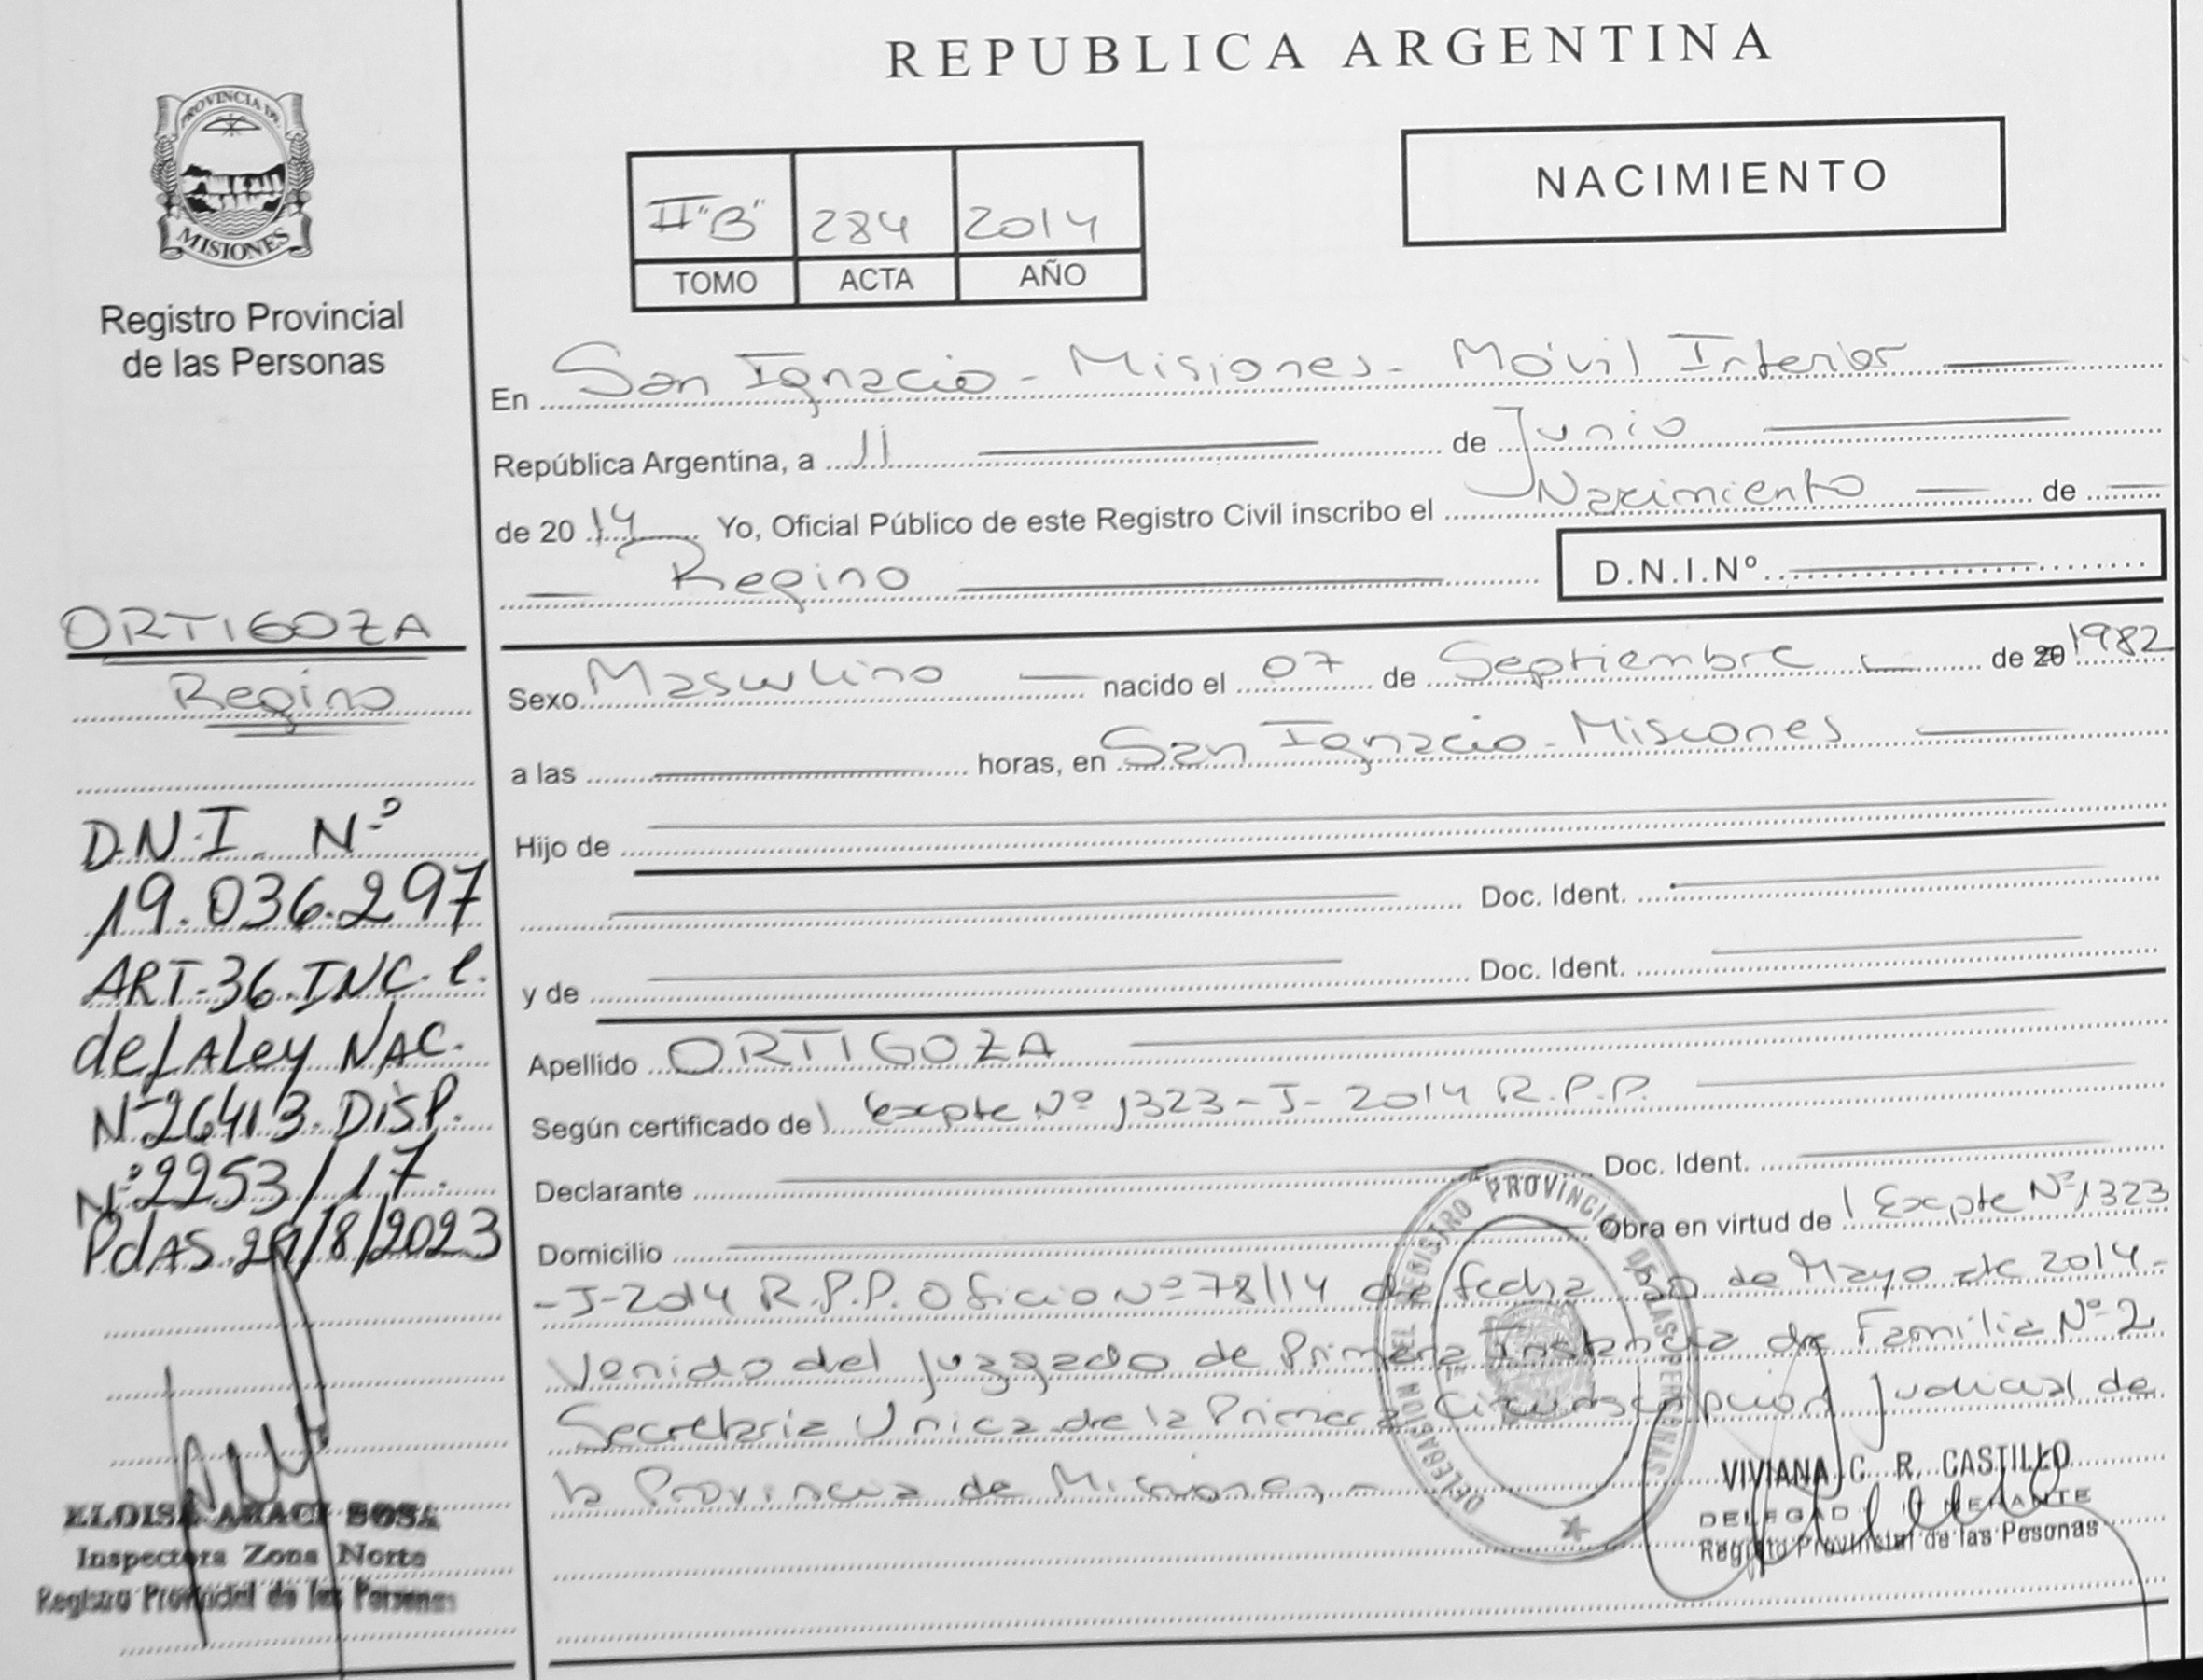 REPUBLICA ARGENTINA
PROVINCIA DE
MISIONES
Registro Provincial
de las Personas
NACIMIENTO
II "B" 284 2014
TOMO ACTA AÑO
En San Ignacio - Misiones - Móvil Interior
República Argentina, a 11 de Junio
de 2014 Yo, Oficial Público de este Registro Civil inscribo el Nacimiento de
Regino D.N.I.Nº
ORTIGOZA
Regino
D.N.I. Nº
19.036.297
ART-36.INC.C.
de LA Ley NAC.
Nº26413.DISP.
Nº2253/17.
PdAS.29/8/2023
ELOISA ARACI SOSA
Inspectora Zona Norte
Registro Provincial de las Personas
Sexo Masculino nacido el 07 de Septiembre de 20 1982
a las horas, en San Ignacio - Misiones
Hijo de
Doc. Ident.
y de Doc. Ident.
Apellido ORTIGOZA
Según certificado del Expte Nº 1323-J-2014 R.P.P.
Declarante Doc. Ident.
Domicilio Obra en virtud del Expte Nº 1323
-J-2014 R.P.P. Oficio Nº 78/14 de fecha 30 de Mayo de 2014-
venido del juzgado de Primera Instancia de Familia Nº 2
Secretaria Unica de la Primera Circunscripcion Judicial de
la Provincia de Misiones.-
DELEGACION DEL REGISTRO PROVINCIAL DE LAS PERSONAS
VIVIANA C. R. CASTILLO
Registro Provincial de las Pesonas